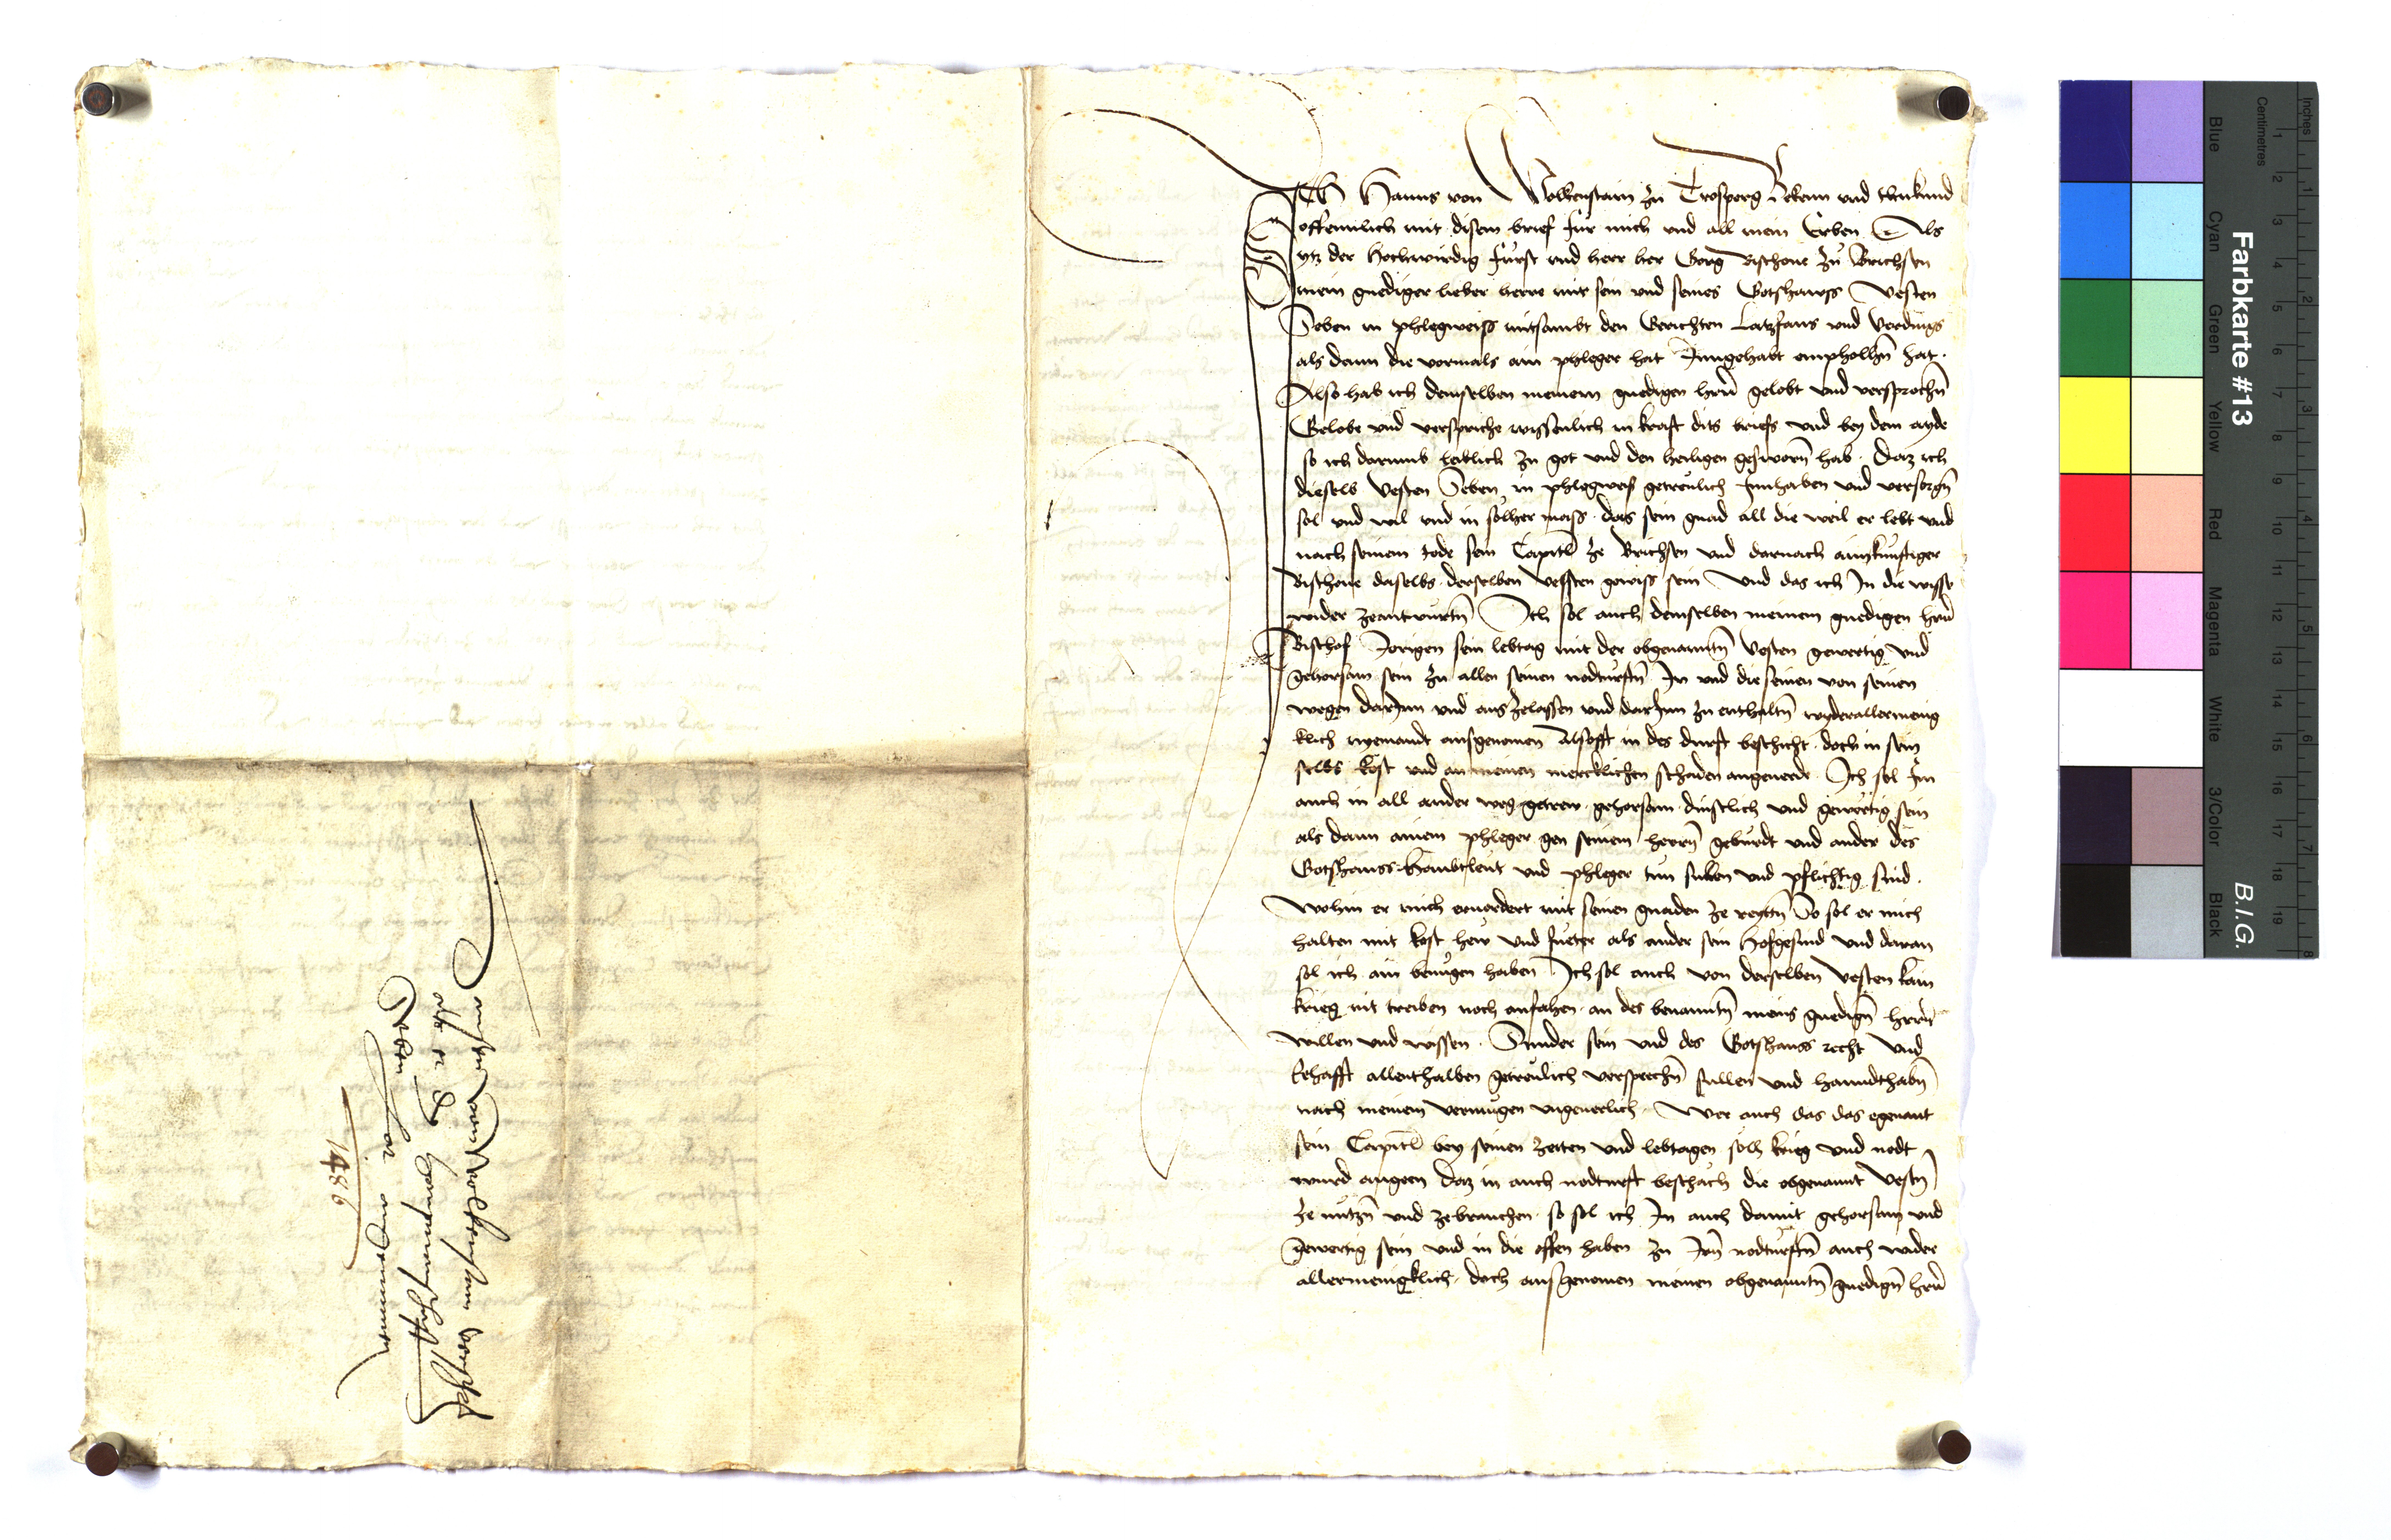 ICh Hanns von Wolkenstain zu Trosperg Bekenn und tun kund
offennlich mit disem brief fur mich und all mein Erben Als
ytz der Hochwirdig furst und herr her Gorg Bischoue zu Brichsen
mein gnediger lieber herre mir sein und seines Gotshawss Vesten
Seben in phlegweiss mitsambt den Gerichten Latzfans und Verdings
als dann die vormals ain phleger hat Inngehabt emphollhn hat.
Also hab ich demselben meinem gnedigen hern gelobt und versprochn
Gelobe und versprich wissenlich in kraft dits briefs und bey dem ayde
so ich darumb leiblich zu got und den heiligen gesworn hab. Daz ich
dieselb Vesten Seben in phlegweiss getreulich Innhaben und versorgn
sol und wil und in solher mass. das sein gnad all die weil er lebt und
nach seinem tode sein Capitl ze Brichsen und darnach ain kunftiger
Bischoue daselbs derselben Vessten gewiss sein Und das ich In die wisse
wider zeantwurtn Ich sol auch demselben meinem gnedigen hern
Bischof Jorigen sein lebtag mit der obgenantn Vesten gewertig und
gehorsam sein zu allen seinen nodturftn In und die seinen von seinen
wegen darInn und aus zelassen und darInn zu enthaltn wyder allermenig
klich nyemandt ausgenomen Alsofft in des durft beschicht. doch in sein
selbs kost und an meinen mercklichen schaden angeuerde. Ich sol Im
auch in all ander weg getrew. gehorsam. dinstlich und gewertig sein
als dann ainem phleger gen seinem herrn geburdt und ander des
Gotshauss Haubtleut und phleger tun sullen und pflichtig sind.
Wohin er mich eruordert mit seinen gnaden ze reyttn So sol er mich
halten mit kost hew und fueter als ander sein Hofgesind und daran
sol ich ain benugen haben Ich sol auch von derselben Vesten kain
krieg nit treiben noch anfahen. an des benanntn meins gnedign herrn
willen und wissen. Sunder sein und des Gotshauss recht Und
Ehafft allenthalben getreulich versprechn sullen und hanndthabn
nach meinem vermugen ungeuerlich. Wer auch das das egenant
sein Capitl bey seinen zeiten und lebtagen solh krieg und nodt
wurd angeen daz in auch nodturft beschach die obgenannt Vestn
ze nutzn und zebrauchen. so sol ich In auch damit gehorsam und
gewertig sein und in die offen haben zu Irn nodturftn auch wider
allermenigklich. doch ausgenomen meinen obgenanntn gnedign hern
Hannsen von Wolkenstain
als er die haubtmanschafft
Seben hat aufgenomen
1486
Farbkarte #13
B.I.G.
Inches
Centimetres
1 2 3 4 5 6 7 8
1 2 3 4 5 6 7 8 9 10 11 12 13 14 15 16 17 18 19
Blue
Cyan
Green
Yellow
Red
Magenta
White
3/Color
Black